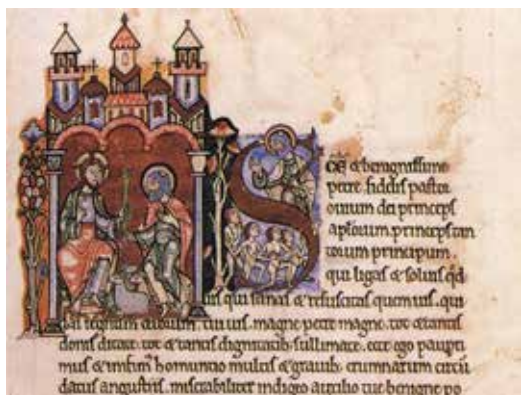 S
cē & benignissime
petre fidelis pastor
ouium dei princeps
aplōrum, princeps tan
torum principum.
qui ligas & soluis qd̄
uis qui sanas & resuscitas quem uis. qui
das regnum cui uis. magne petre magne. tot & tantis
donis ditate. tot & tantis dignitatib; sullimate. ecce ego
mus & infim' homuncio multis & grauib; erumnarum circū
datus angustiis. miserabiliter indigeo auxilio tue benigne po